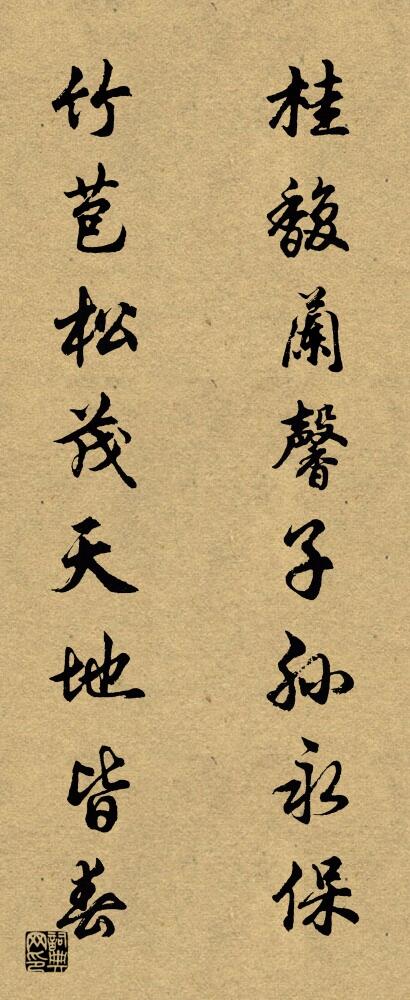 桂馥蘭馨子孫永保
竹苞松茂天地皆春
詞典網印